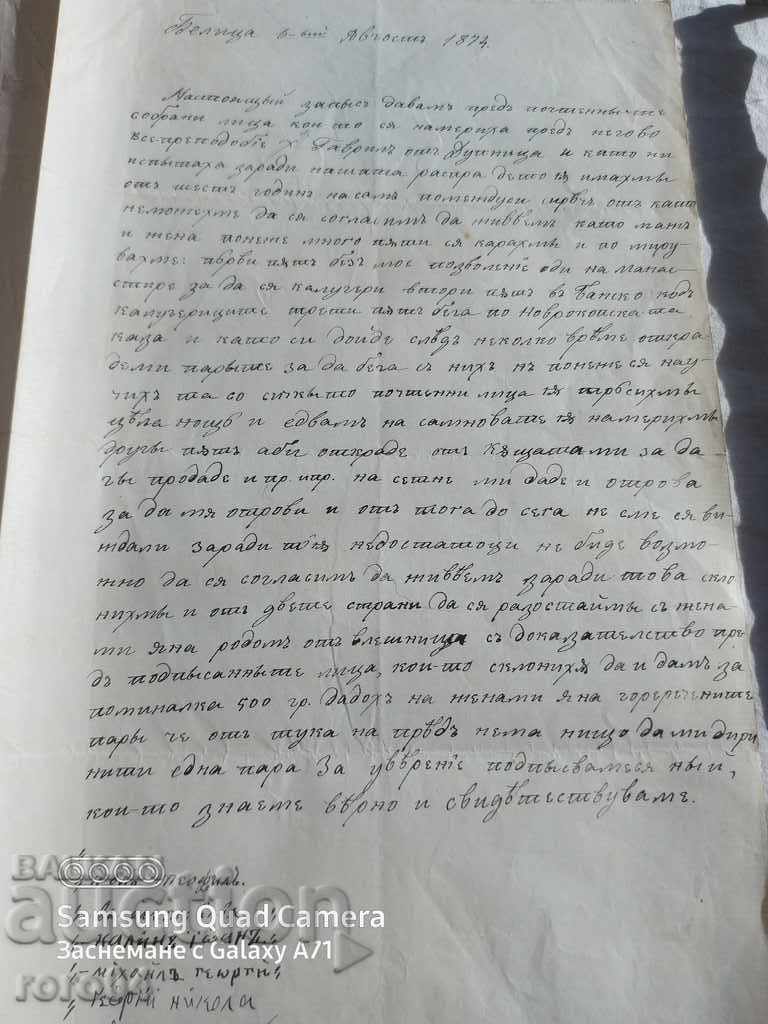 Белица 6-ый Августъ 1874.
Настоящый запысъ давамъ предъ почтенныте
собрани лица кои то ся намериха предъ негово
всепреподобіе Х Гаврилъ отъ Дупница и като ни
испытаха заради нашата распра дето ѭ имахмы
отъ шесть годинъ насамъ помежduси сирѣчь отъ както
неможехме да ся согласимъ да живѣемъ като мажъ
и жена понеже много пѫти ся карахмы и по миру-
вахме: първи пѫтъ безъ мое позволеніе оди на манас-
тире за да ся калугери втори пѫтъ въ Банско кодъ
калугерицыте трети пѫтъ бѣга по Неврокопската
каза и като си дойде слѣдъ неколко врѣме открад-
деми парыте за да бѣга съ нихъ нъ понеже ся нау-
чихъ та со сичкыто почтенни лица ѭ търсихмы
цѣла нощь и едвамъ на самновате ѭ намерихмы
другы пѫтъ аби открадe отъ кѫщатами за да-
гы продаде и пр. ипр. на сетне ми даде и отрова
за да мя отрови и отъ тога до сега не сме ся ви-
ждали заради тѣѭ недостатоци не биде возмо-
жно да ся согласимъ да живѣемъ заради това скло
нихмы и отъ двете страни да ся разостаймы съ жена-
ми Яна родомъ отъ Влешница съ доказателство пре-
дъ подпысанныте лица, кои-то склонихѫ да и дамъ за
поминалка 500 гр. дадохъ на женами Яна горереченните
пары че отъ тука на прѣдъ нема нищо да ми дири
нити една пара За увѣреніе подпысвамеся ный,
кои-то знаеме вѣрно и свидѣтествуваме.
теофилъ.
Калинъ Іованъ
Міхаилъ георги
георгі никола
Samsung Quad Camera
Заснемане с Galaxy A71
auction
roro94